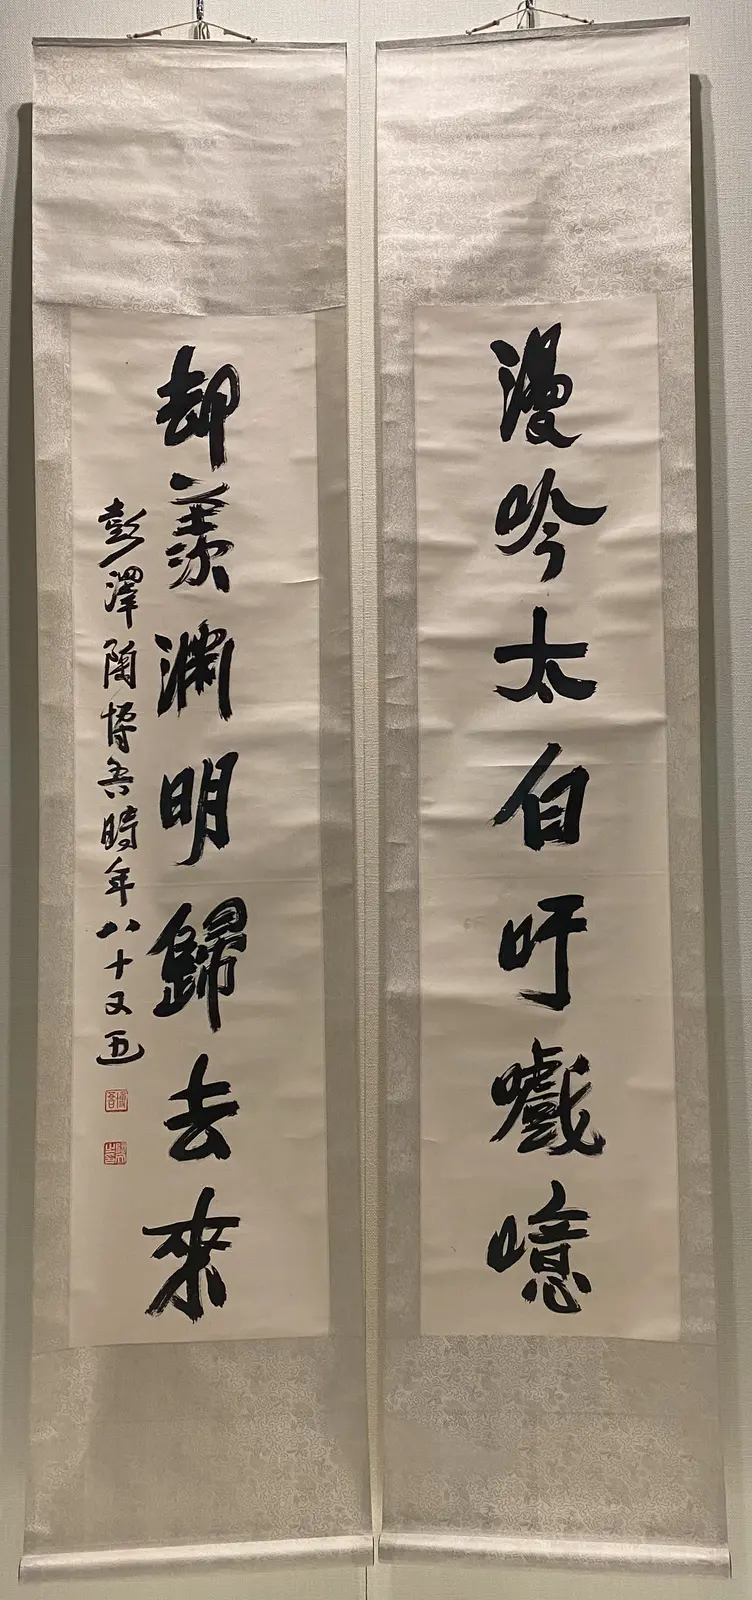 漫吟太白吁戲噫
却羨淵明歸去來
彭澤陶博吾時年八十又五